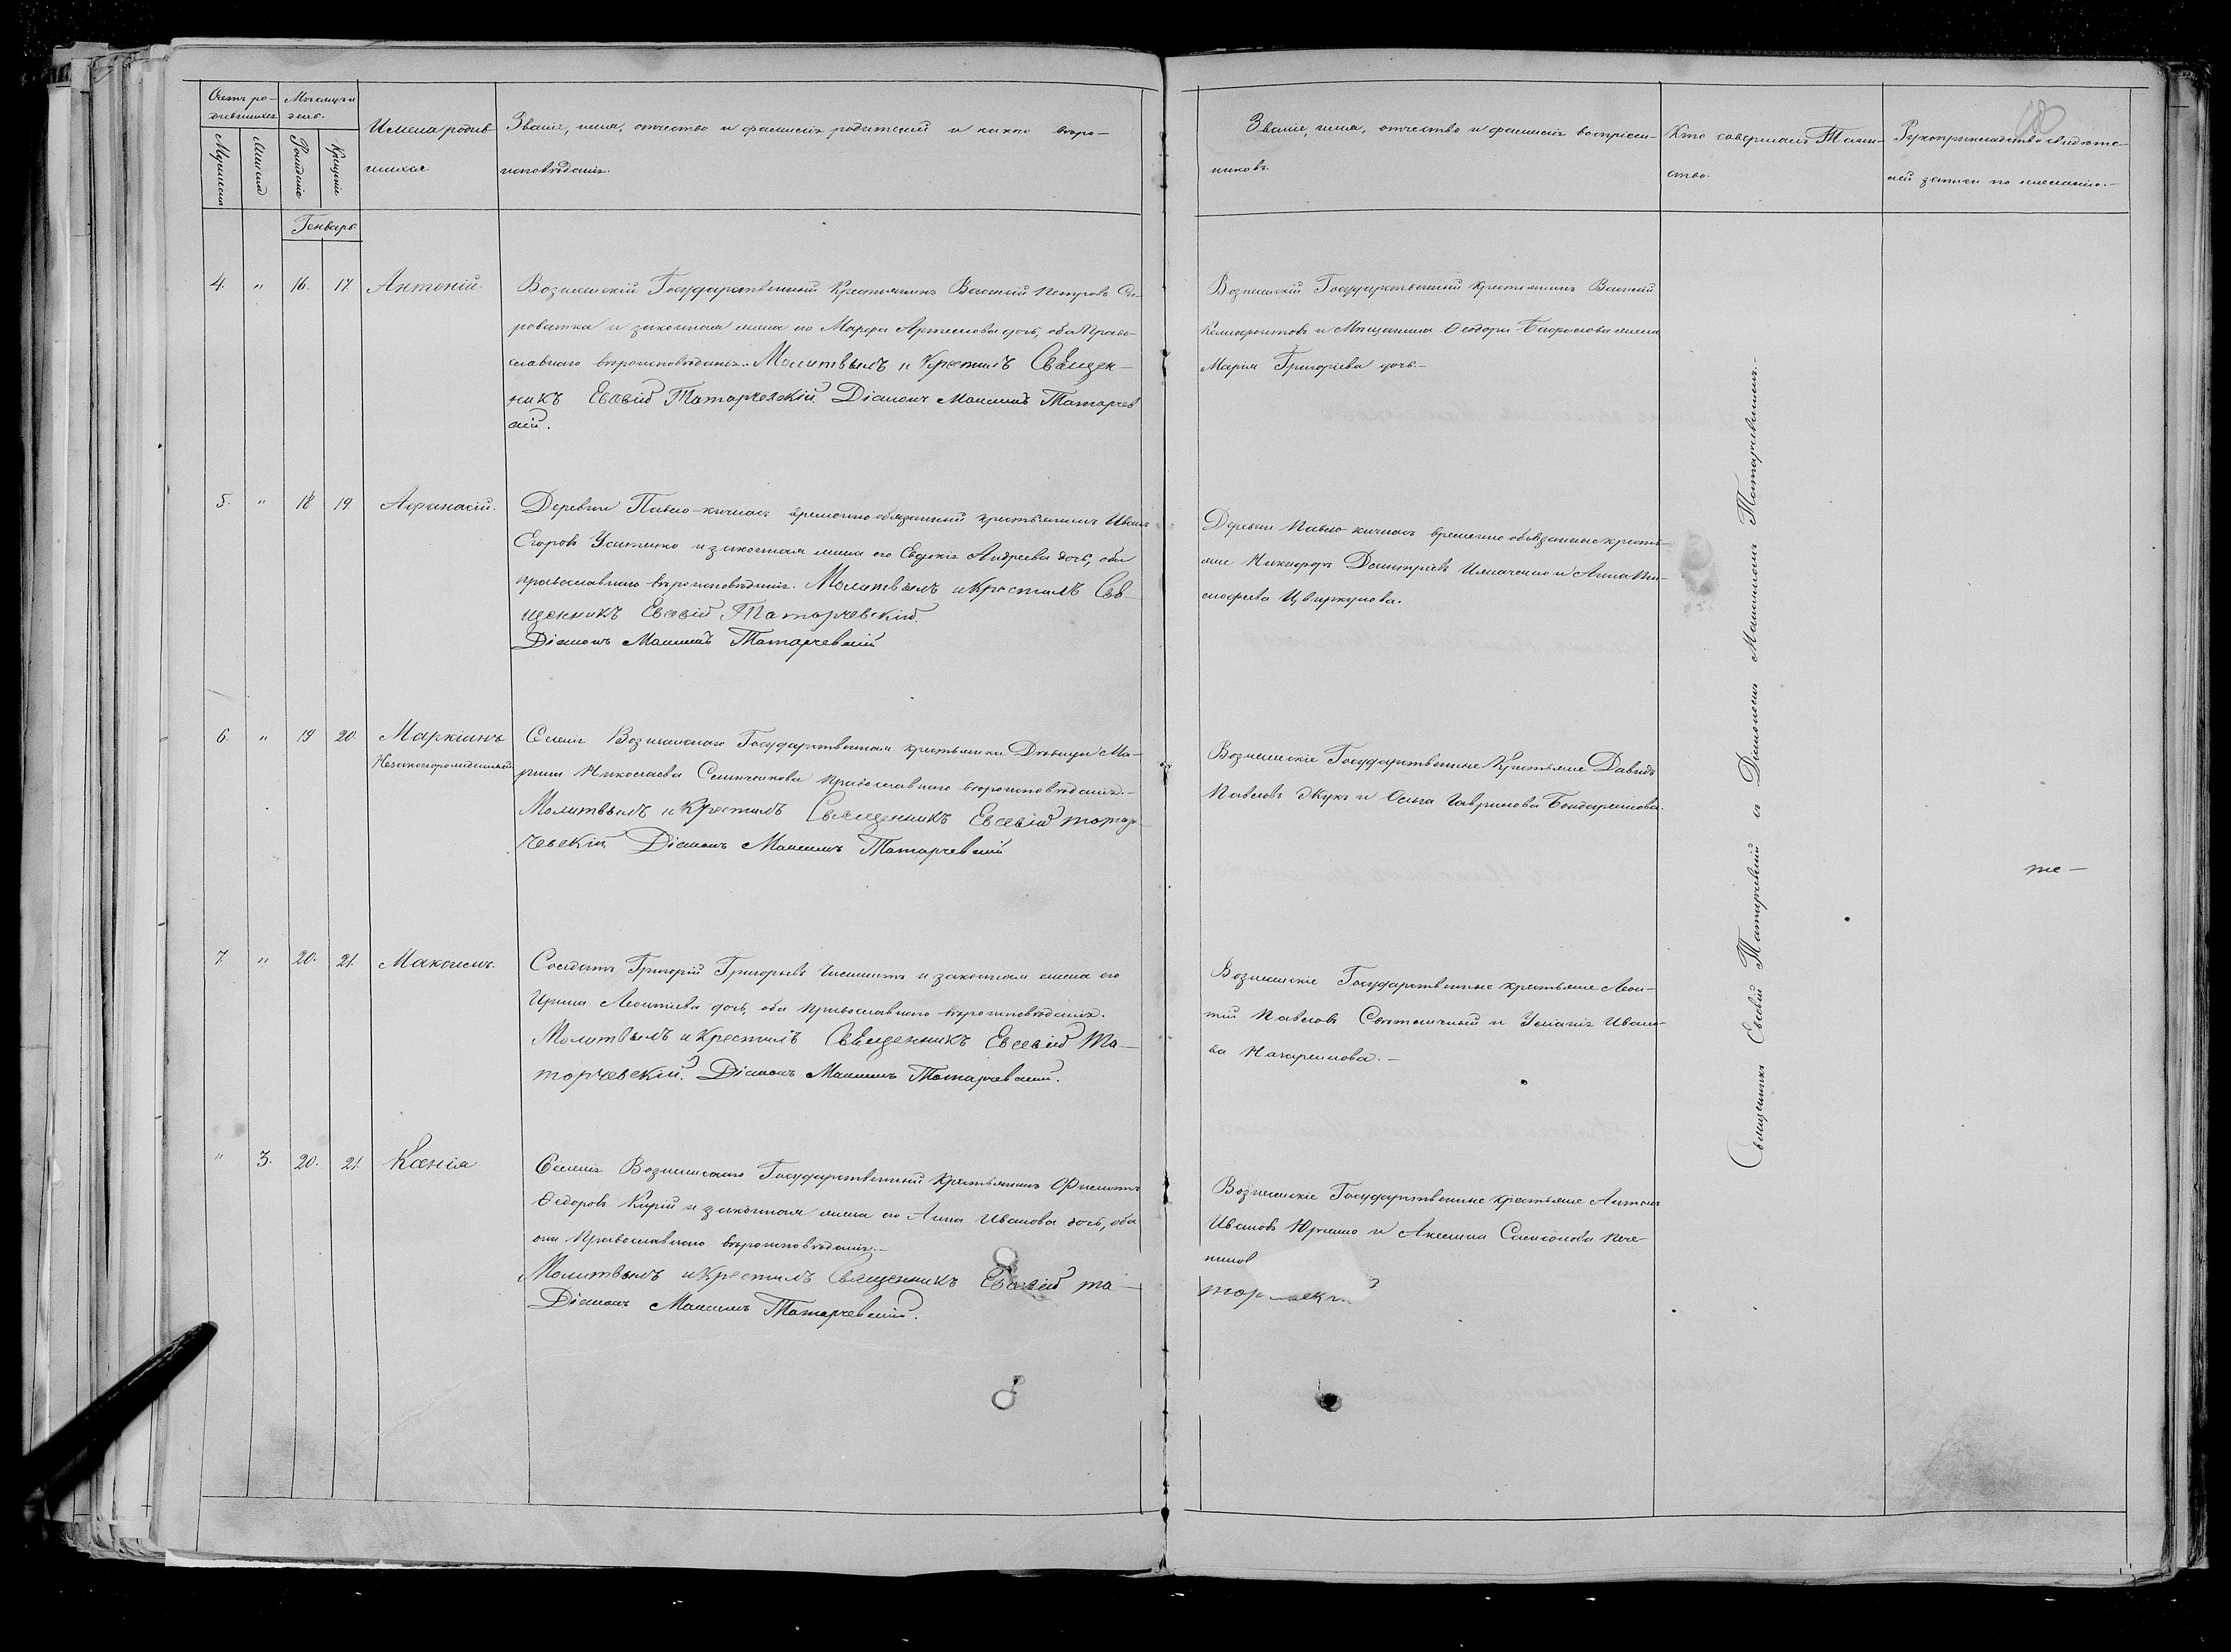 Счетъ ро-
дившихся
Мѣсяцъ и
день.
Мужеска
Женска
Рожденіе
Крещеніе
Имена родив-
шихся.
Званіе, имя, отчество и фамилія родителей и какого вѣро-
исповѣданія.
Званіе, имя, отчество и фамилія воспріем-
никовъ.
Кто совершалъ Таин-
ство.
Рукоприкладство свидѣте-
лей записи по желанію.-
Генварь
4. " 16. 17. Антоній.
Вознесенскій Государственный Крестьянинъ Василій Петровъ Си-
роватка и законная жена его Марфа Артемова дочь, оба Право-
славнаго вѣроисповѣданія. Молитвылъ и Крестилъ Священ-
никъ Евсевій Татарчевскій. Діаконъ Максимъ Татарчев
скій.
Вознесенскій Государственный крестьянинъ Василій
и Мѣщанина Ѳеодора жена
Марія Григоріева дочь.-
5. " 18 19. Афанасій.
Деревни Павло-кичкасъ временно обязанный крестьянинъ Иванъ
Егоровъ Усатенко и законная жена его Евдокія Андреева дочь, оба
православнаго вѣроисповѣданія. Молитвылъ и Крестилъ Свя
щенникъ Евсевій Татарчевскій.
Діаконъ Максимъ Татарчевскій
Деревни Павло кичкасъ временно обязанные кресть-
яне Никифоръ Дмитріевъ и Анна Ти-
мофеева Цвиркунова.
6. " 19 20. Маркіанъ
Незаконнорожденный
Селенія Вознесенскаго Государственная крестьянка Дѣвица Ма-
рина Николаева Православнаго вѣроисповѣданія.-
Молитвылъ и Крестилъ Священникъ Евсевій татар-
чевскій Діаконъ Максимъ Татарчевскій
Вознесенскіе Государственные Крестьяне Давидъ
Павловъ Жукъ и Ольга Гаврилова Бондаренкова.
же -
7. " 20. 21. Максимъ.
Солдатъ Григорій Григорьевъ и законная жена его
Ирина Леонтіева дочь, оба православнаго вѣроисповѣданія.
Молитвылъ и Крестилъ Священникъ Евсевій Та-
тарчевскій. Діаконъ Максимъ Татарчевскій.
Вознесенскіе Государственные крестьяне Леон-
тій Павловъ Свѣтличный и Уліанія Ивано-
ва
" 3. 20. 21. Ксенія
Селенія Вознесенскаго Государственный Крестьянинъ Филиппъ
Ѳедоровъ Кирій и законная жена его Анна Иванова дочь, оба
они Православнаго вѣроисповѣданія.-
Молитвылъ и Крестилъ Священникъ Евсевій та-
Діаконъ Максимъ Татарчевскій.
Вознесенскіе Государственные крестьяне Антонъ
Ивановъ Юрченко и Акилина Самсонова
Священникъ Евсевій Татарчевскій и Діаконъ Максимъ Татарчевскій.-